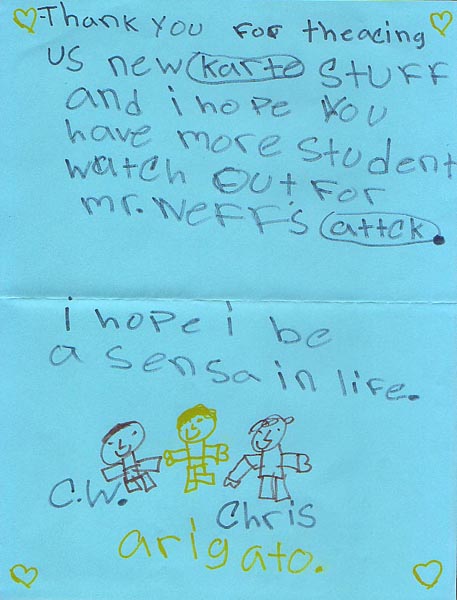 Thank you for theacing
us new karte stuff
and i hope you
have more student
watch out for
mr. Neff's attck.
i hope i be
a sensa in life.
C.W.
Chris
arigato.